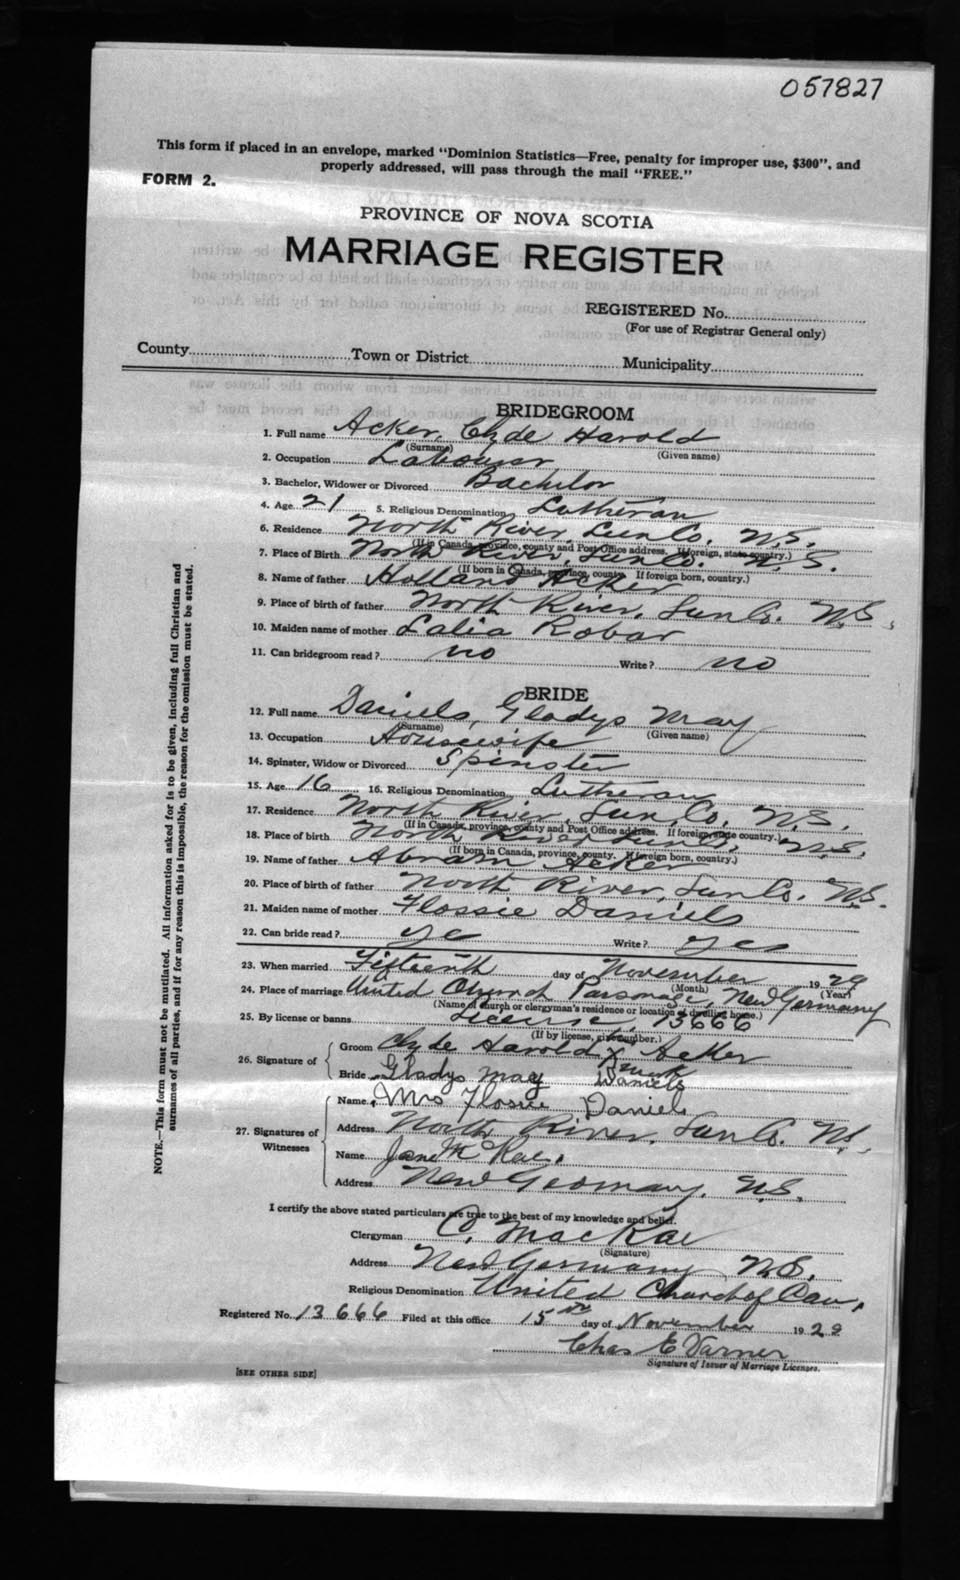 057827
This form if placed in an envelope, marked "Dominion Statistics—Free, penalty for improper use, $300", and
properly addressed, will pass through the mail "FREE."
FORM 2.
PROVINCE OF NOVA SCOTIA
MARRIAGE REGISTER
REGISTERED No.
(For use of Registrar General only)
County Town or District Municipality
BRIDEGROOM
1. Full name Acker, Clyde Harold
(Surname) (Given name)
2. Occupation Labourer
3. Bachelor, Widower or Divorced Bachelor
4. Age 21 5. Religious Denomination Lutheran
6. Residence North River, Lun Co. N.S.
(If in Canada, province, county and Post Office address. If foreign, state country.)
7. Place of Birth North River, Lun Co. N.S.
(If born in Canada, province, county. If foreign born, country.)
8. Name of father Holland Acker
9. Place of birth of father North River, Lun Co. N.S.
10. Maiden name of mother Lalia Robar
11. Can bridegroom read? no Write? no
BRIDE
12. Full name Daniels, Gladys May
(Surname) (Given name)
13. Occupation Housewife
14. Spinster, Widow or Divorced Spinster
15. Age 16 16. Religious Denomination Lutheran
17. Residence North River, Lun, Co, N.S.
(If in Canada, province, county and Post Office address. If foreign, state country.)
18. Place of birth North River Lun Co. N.S.
(If born in Canada, province, county. If foreign born, country.)
19. Name of father Abram Acker
20. Place of birth of father North River, Lun Co. N.S.
21. Maiden name of mother Flossie Daniels
22. Can bride read? ye Write? yes
23. When married Fifteenth day of November 1929
(Month) (Year)
24. Place of marriage United Church Parsonage, New Germany
(Name of church or clergyman's residence or location of dwelling home.)
25. By license or banns License, 13666
(If by license, give number.)
26. Signature of Groom Clyde Harold X Acker
mark
Bride Gladys May Daniels
27. Signatures of Witnesses
Name Mrs Flossie Daniels
Address North River, Lun Co. N.S.
Name Jane McRae.
Address New Germany, N.S.
I certify the above stated particulars are true to the best of my knowledge and belief.
Clergyman C. MacKae
(Signature)
Address New Germany N.S.
Religious Denomination United Church of Can.
Registered No. 13666 Filed at this office 15th day of November 1929
Chas E Varner
Signature of Issuer of Marriage Licenses.
[SEE OTHER SIDE]
NOTE.—This form must not be mutilated. All information asked for is to be given, including full Christian and
surnames of all parties, and if for any reason this is impossible, the reason for the omission must be stated.